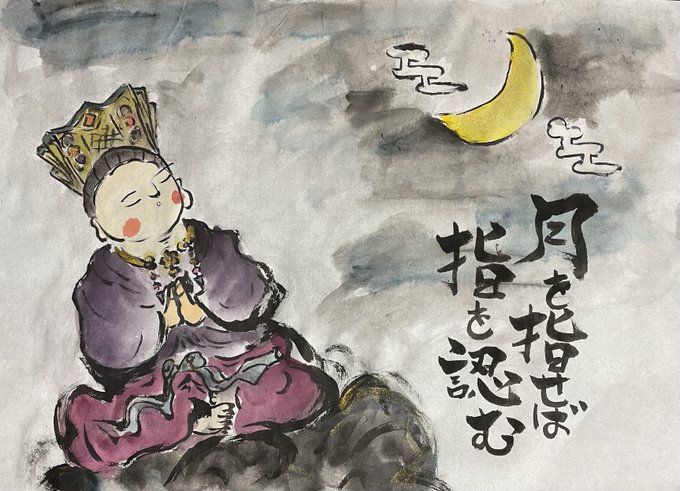 月を指せば
指を認む